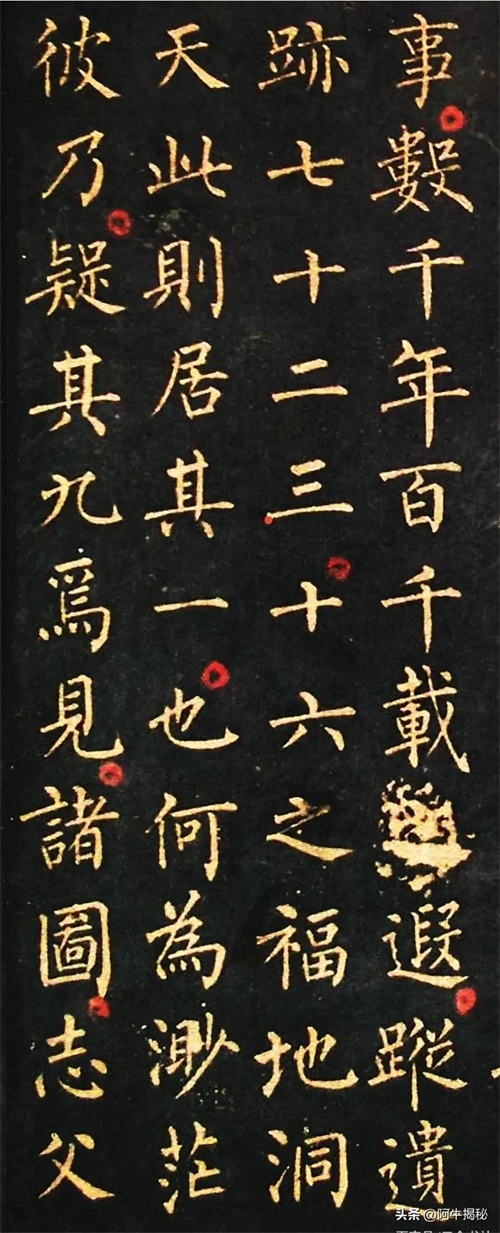 事數千年百千載遐蹤遺
跡七十二三十六之福地洞
天此則居其一也何為渺茫
彼乃疑其九爲見諸圖志父
头条@阿牛揭秘